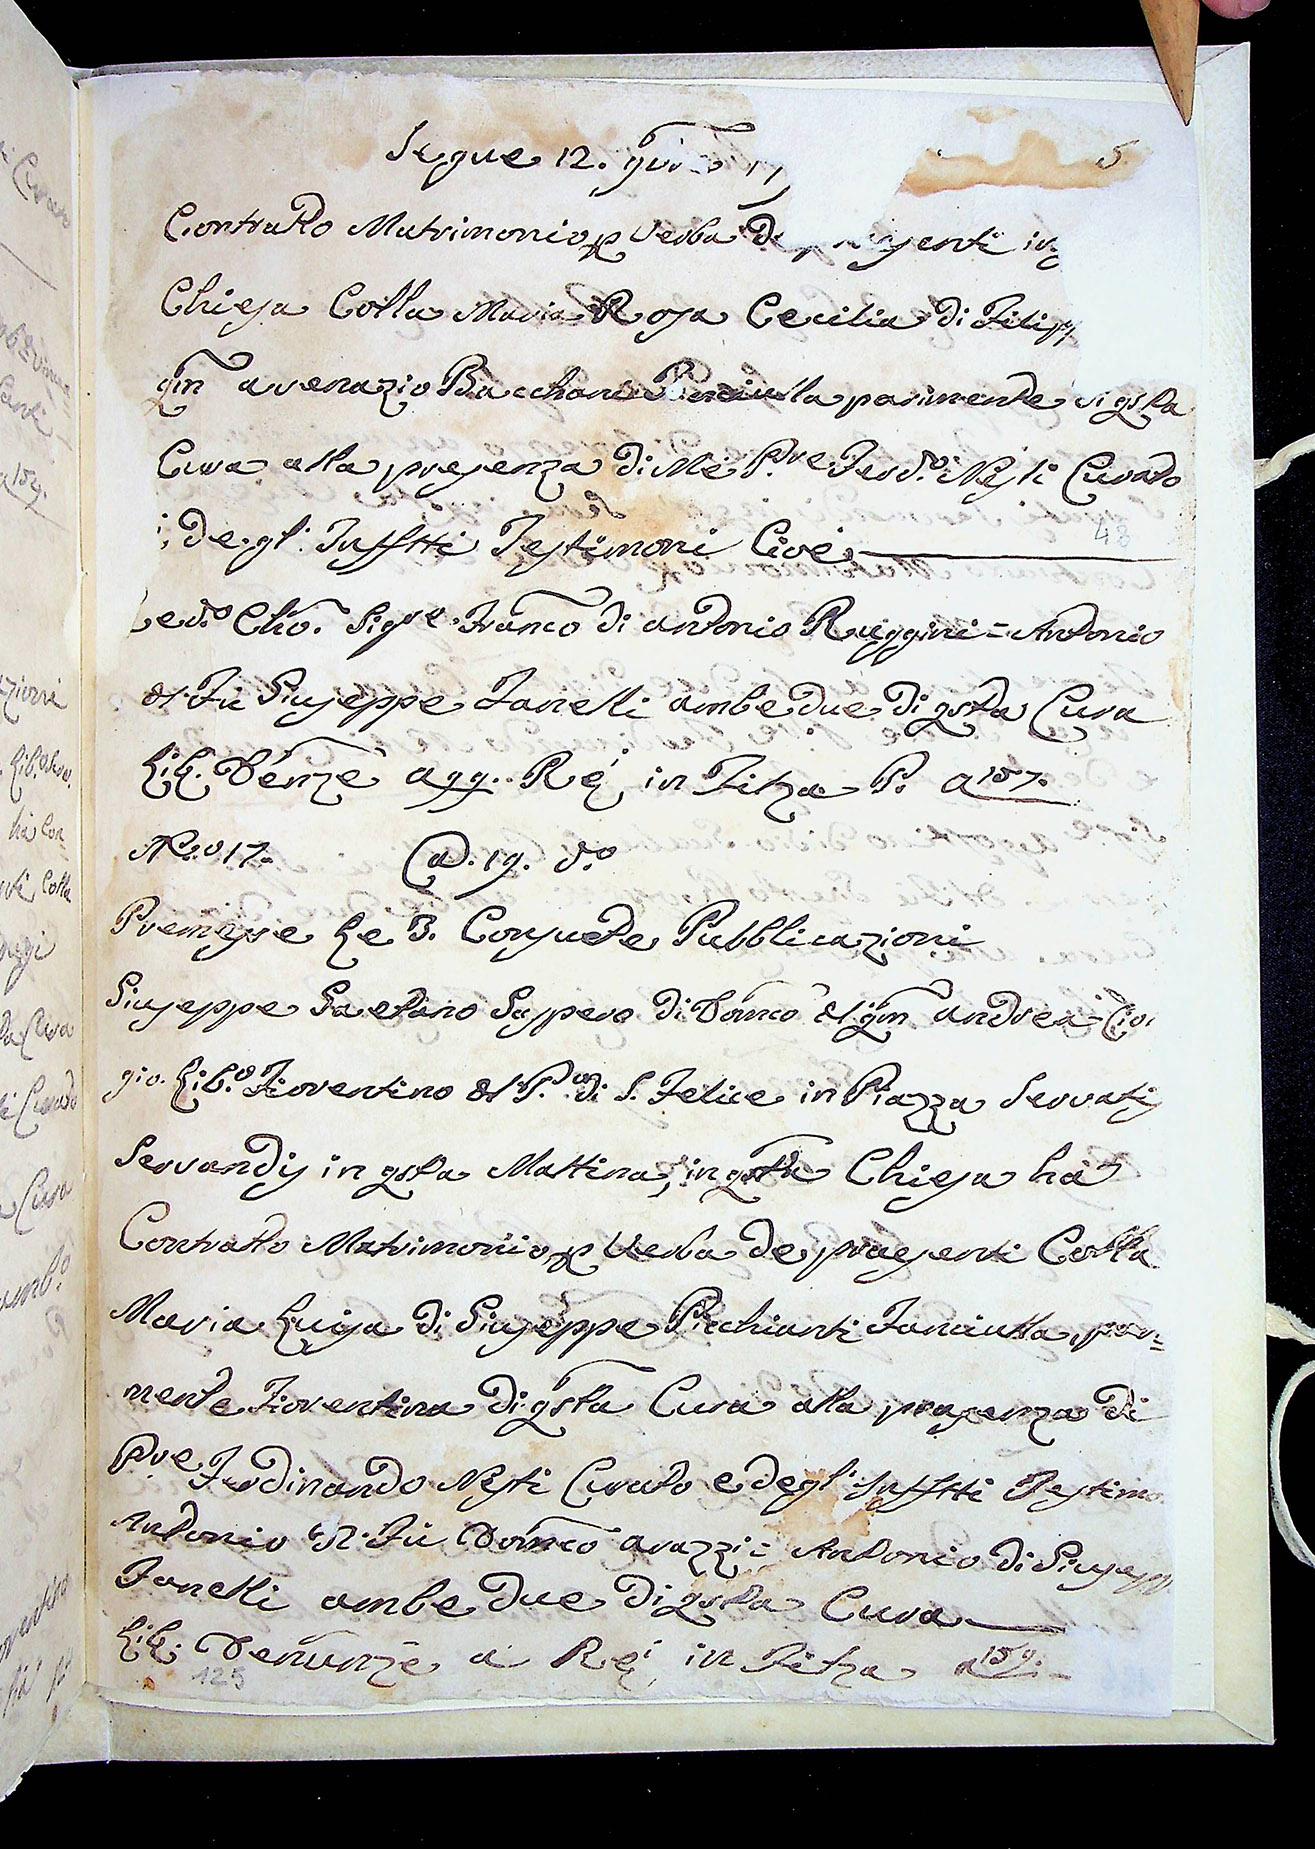 Segue 12.
5
Contratto Matrimonio p Verba De presenti in
Chiesa Colla Maria Rosa Cecilia di Filipp
qm Bacchani Fanciulla parimente di qsta
Cura alla presenza di Me P.re Ferd.o Nesti Curato
e degl'. Infftti Testimoni Cioè
48
e d.o Sig.re Franco di Antonio Ruggini = Antonio
del Fù Giuseppe Fanelli ambe due di qsta Cura
Lib. Denze agg. Re in Filza P. a 157.
No: 17. A. 19. d.o
Premesse Le 3. Consuete Pubblicazioni
Giuseppe Gaetano di Domco del qm Andrea
Fiorentino del P. di S. Felice in Piazza Servatis
Servandis in qsta Mattina, in qsta Chiesa hà
Contratto Matrimonio, p Verba de, praesenti Colla
Maria Luisa di Giuseppe Picchianti Fanciulla, pari=
mente Fiorentina di qsta Cura alla presenza di
Pre Ferdinando Nesti Curato e degl' Infftti Testimo
Antonio del Fù Domco Arazzi = Antonio di Giusepp
Fanelli ambe due di qsta Cura
Lib. Denunze a Re in Filza a 159.
125